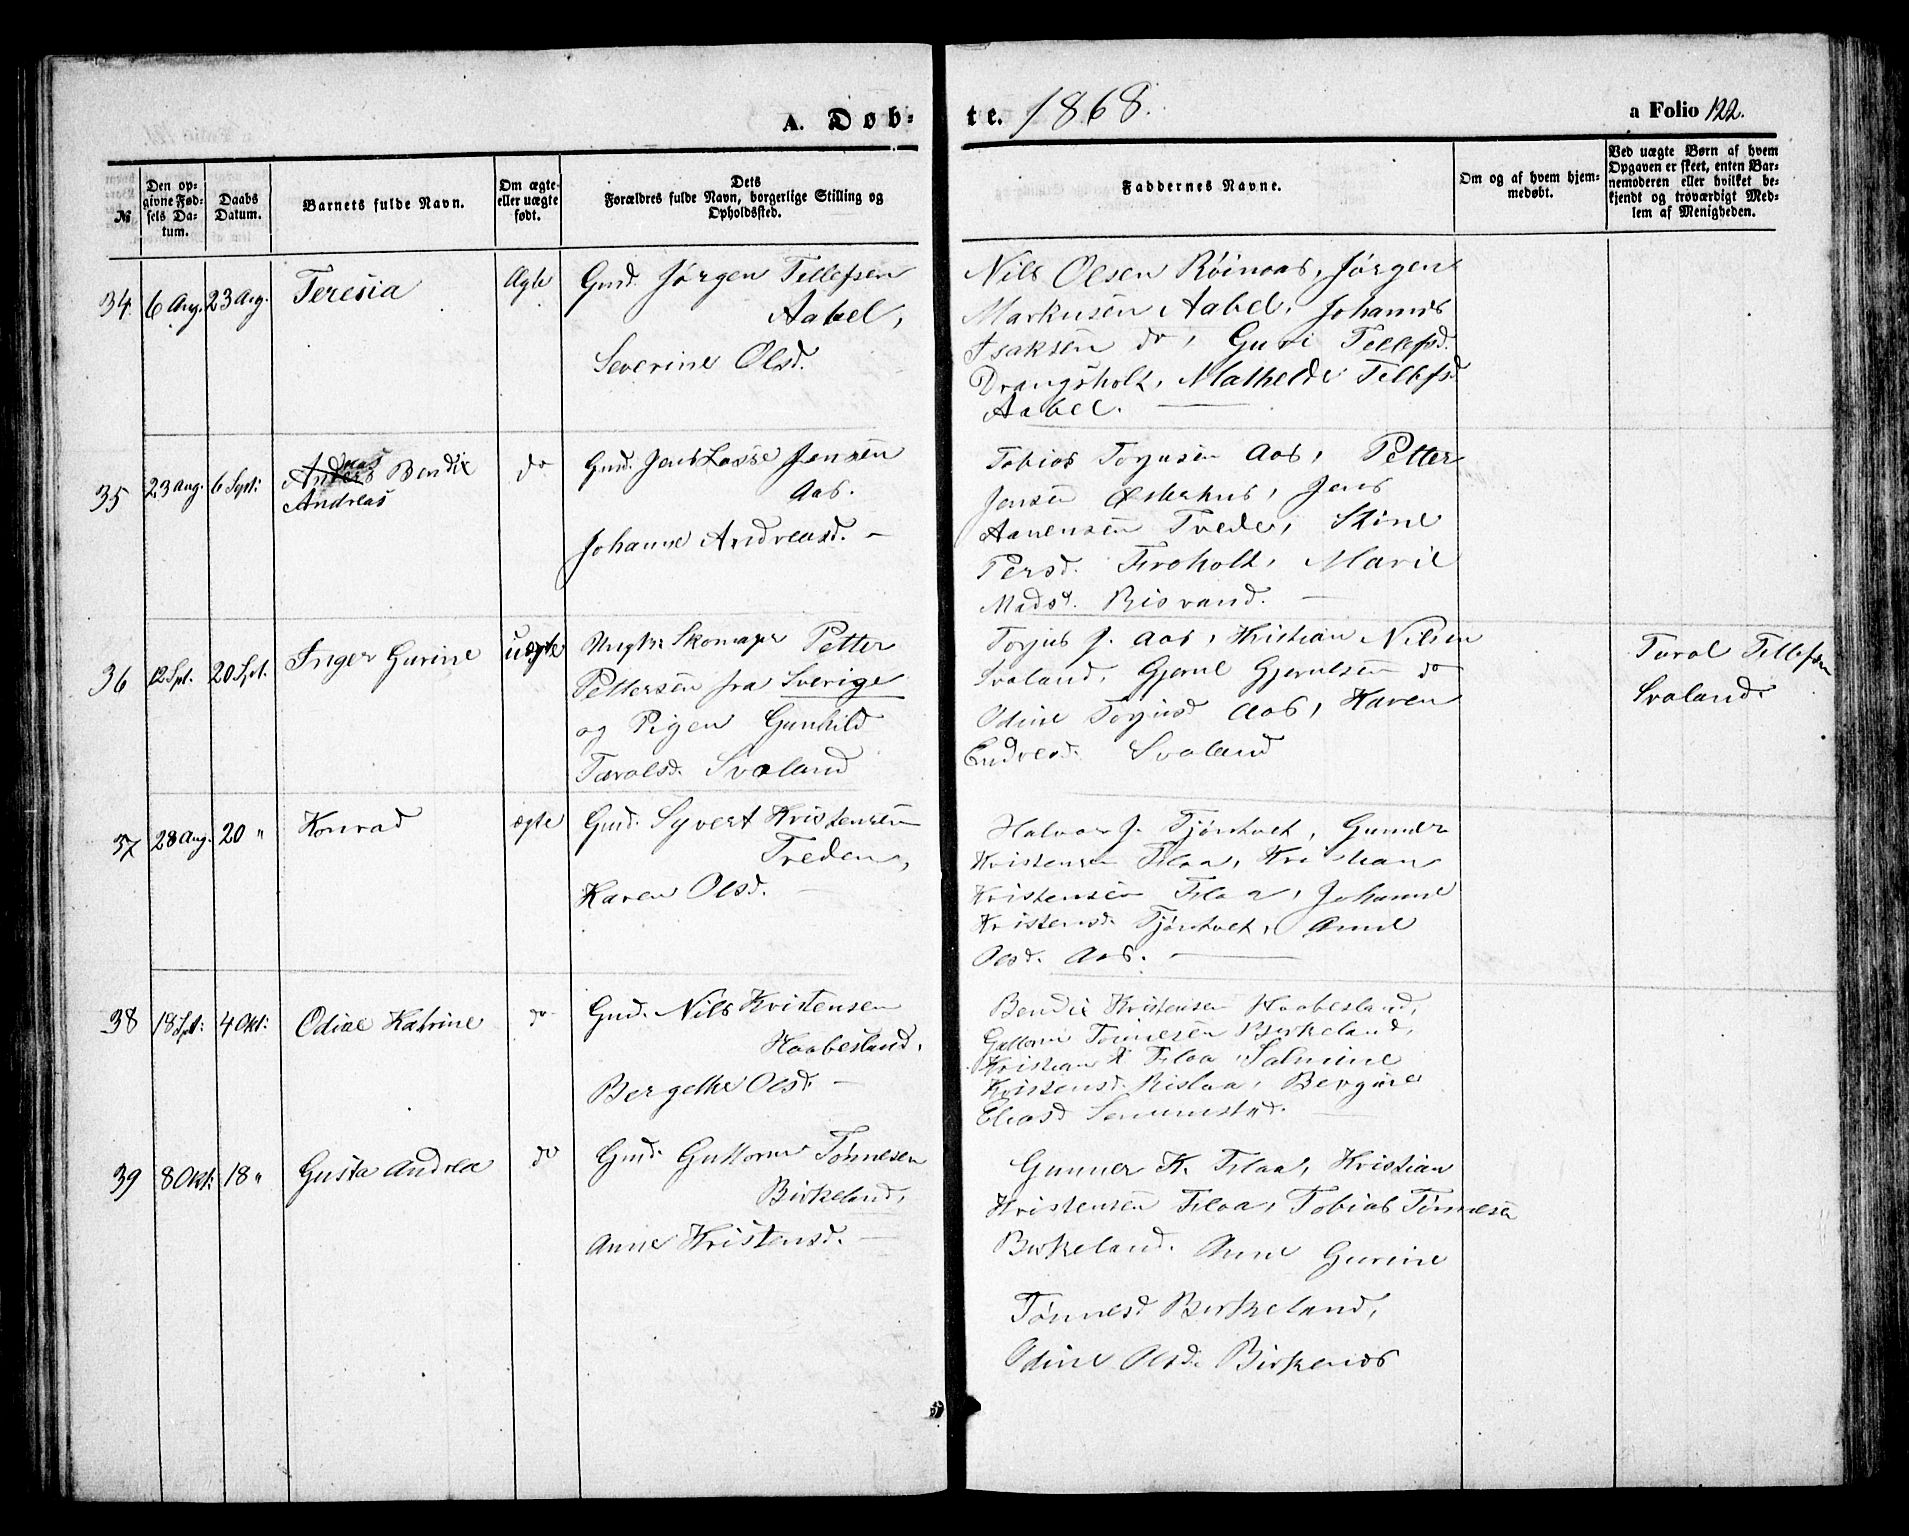 A. Døb-
te. 1868.
a Folio 122.
№
Den op-
givne Fød-
sels Da-
tum.
Daabs
Datum.
Barnets fulde Navn.
Om ægte
eller uægte
født.
Dets
Forældres fulde Navn, borgerlige Stilling og
Opholdssted.
Faddernes Navne.
Om og af hvem hjem-
medøbt.
Ved uægte Børn af hvem
Opgaven er skeet, enten Bar-
nemoderen eller hvilket be-
kjendt og troværdigt Med-
lem af Menigheden.
34. 6 Aug. 23 Aug. Teresia Ægte
Gmd. Jørgen Tellefsen
Aabel,
Severine Olsd.
Nils Olsen Røinaas, Jørgen
Markusen Aabel, Johannes
Isaksen do, Guri Tellefsd.
Drangsholt, Mathelde Tellefsd
Aabel.
35 23 Aug. 6 Sept: Anders Bendix do
Andreas
Gmd. Jens Lasse Jensen
Aas.
Johanne Andreasd. –
Tobias Torjusen Aas, Petter
Jensen Østerhus, Jens
Aanensen Trede, Stine
Persd. Froholt, Marie
Madsd. Risvand. –
36 12 Spt. 20 Spt. Inger Gurine uægte
Ungk. Skomager Petter
Pettersen fra Sverige
og Pigen Gunhild
Taralsd. Svaland
Torjus J. Aas, Kristian Nilsen
Svaland, Gjerul Gjerulsen do
Odine Torjusd Aas, Karen
Endresd. Svaland
Taral Tellefsen
Svaland.
37 28 Aug. 20 " Konrad ægte
Gmd. Syvert Kristensen
Treden,
Karen Olsd. –
Halvor J. Tjøntvet, Gunder
Kristensen Flaa, Kristian
Kristensen Flaa, Johanne
Kristensd. Tjøntvet, Anne
Olsd. Aas.
38 18 Spt: 4 Okt: Odine Katrine do
Gmd. Nils Kristensen
Haabesland,
Bergethe Olsd: –
Bendix Kristensen Haabesland,
Guttorm Tønnesen Birkeland,
Kristian K Flaa, Salmine
Kristensd. Rislaa, Bergine
Eliasd
39 8 Okt: 18 " Gusta Andrea do
Gmd. Guttorm Tønnesen
Birkeland,
Anne Kristensd. –
Gunner K. Flaa, Kristian
Kristensen Flaa, Tobias Tønnesen
Birkeland. Anne Gurine
Tønnesd Birkeland,
Odine Olsd. Birkenes